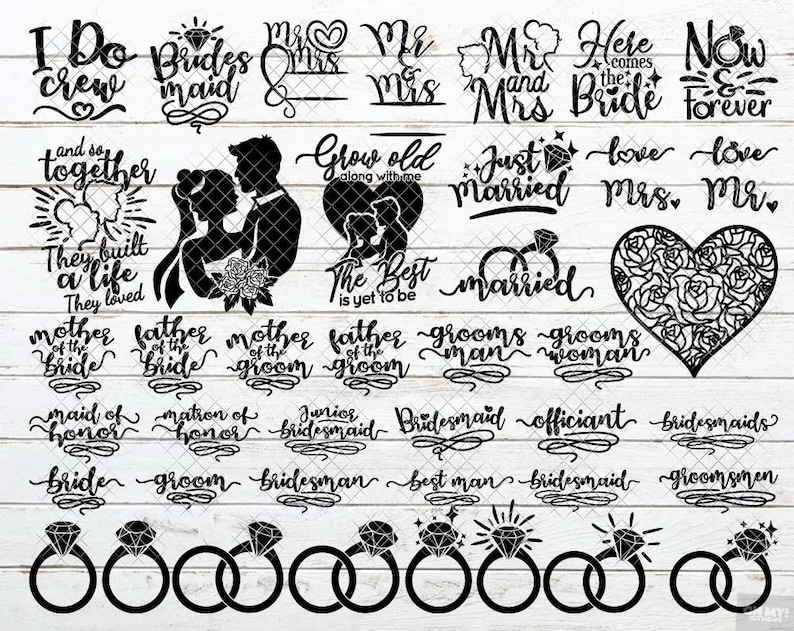 I Do
crew
Brides
maid
Mr
&
Mrs
Mr
&
Mrs
Mr
and
Mrs
Here
comes
the
Bride
Now
&
Forever
and so
together
They built
a life
They loved
Grow old
along with me
The Best
is yet to be
Just
Married
love
Mrs.
love
Mr.
married
mother
of the
bride
father
of the
bride
mother
of the
groom
father
of the
groom
grooms
man
grooms
woman
maid of
honor
matron of
honor
Junior
bridesmaid
Bridesmaid
officiant
bridesmaids
bride
groom
bridesman
best man
bridesmaid
groomsmen
OH MY!
CUTTABLES